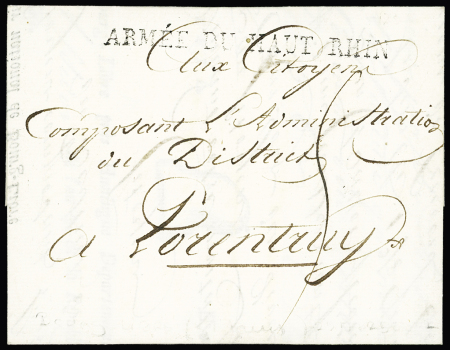 ARMÉE DU HAUT RHIN
Aux Citoyens
Composant L'Administration
du District
a Porentruy